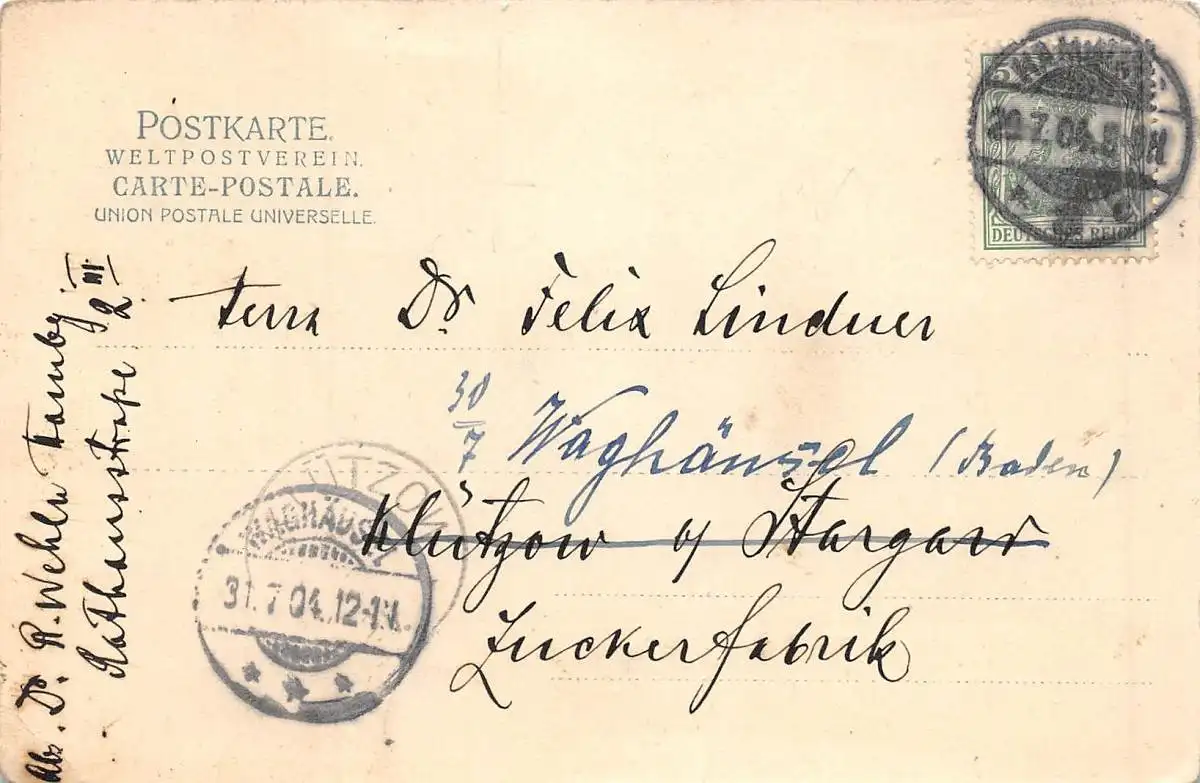 POSTKARTE.
WELTPOSTVEREIN.
CARTE-POSTALE.
UNION POSTALE UNIVERSELLE.
5 5
DEUTSCHES REICH
7.04.8-9N
* 1 c
Herrn Dr. Felix Lindner
30/7 Waghäusel (Baden)
Klützow b/ Stargard
Zuckerfabrik
KLÜTZOW
WAGHÄUSEL
31.7.04.12-1N.
* * *
Abs. Dr. R. Wehln Hambg
Rathausstrasse 2 III